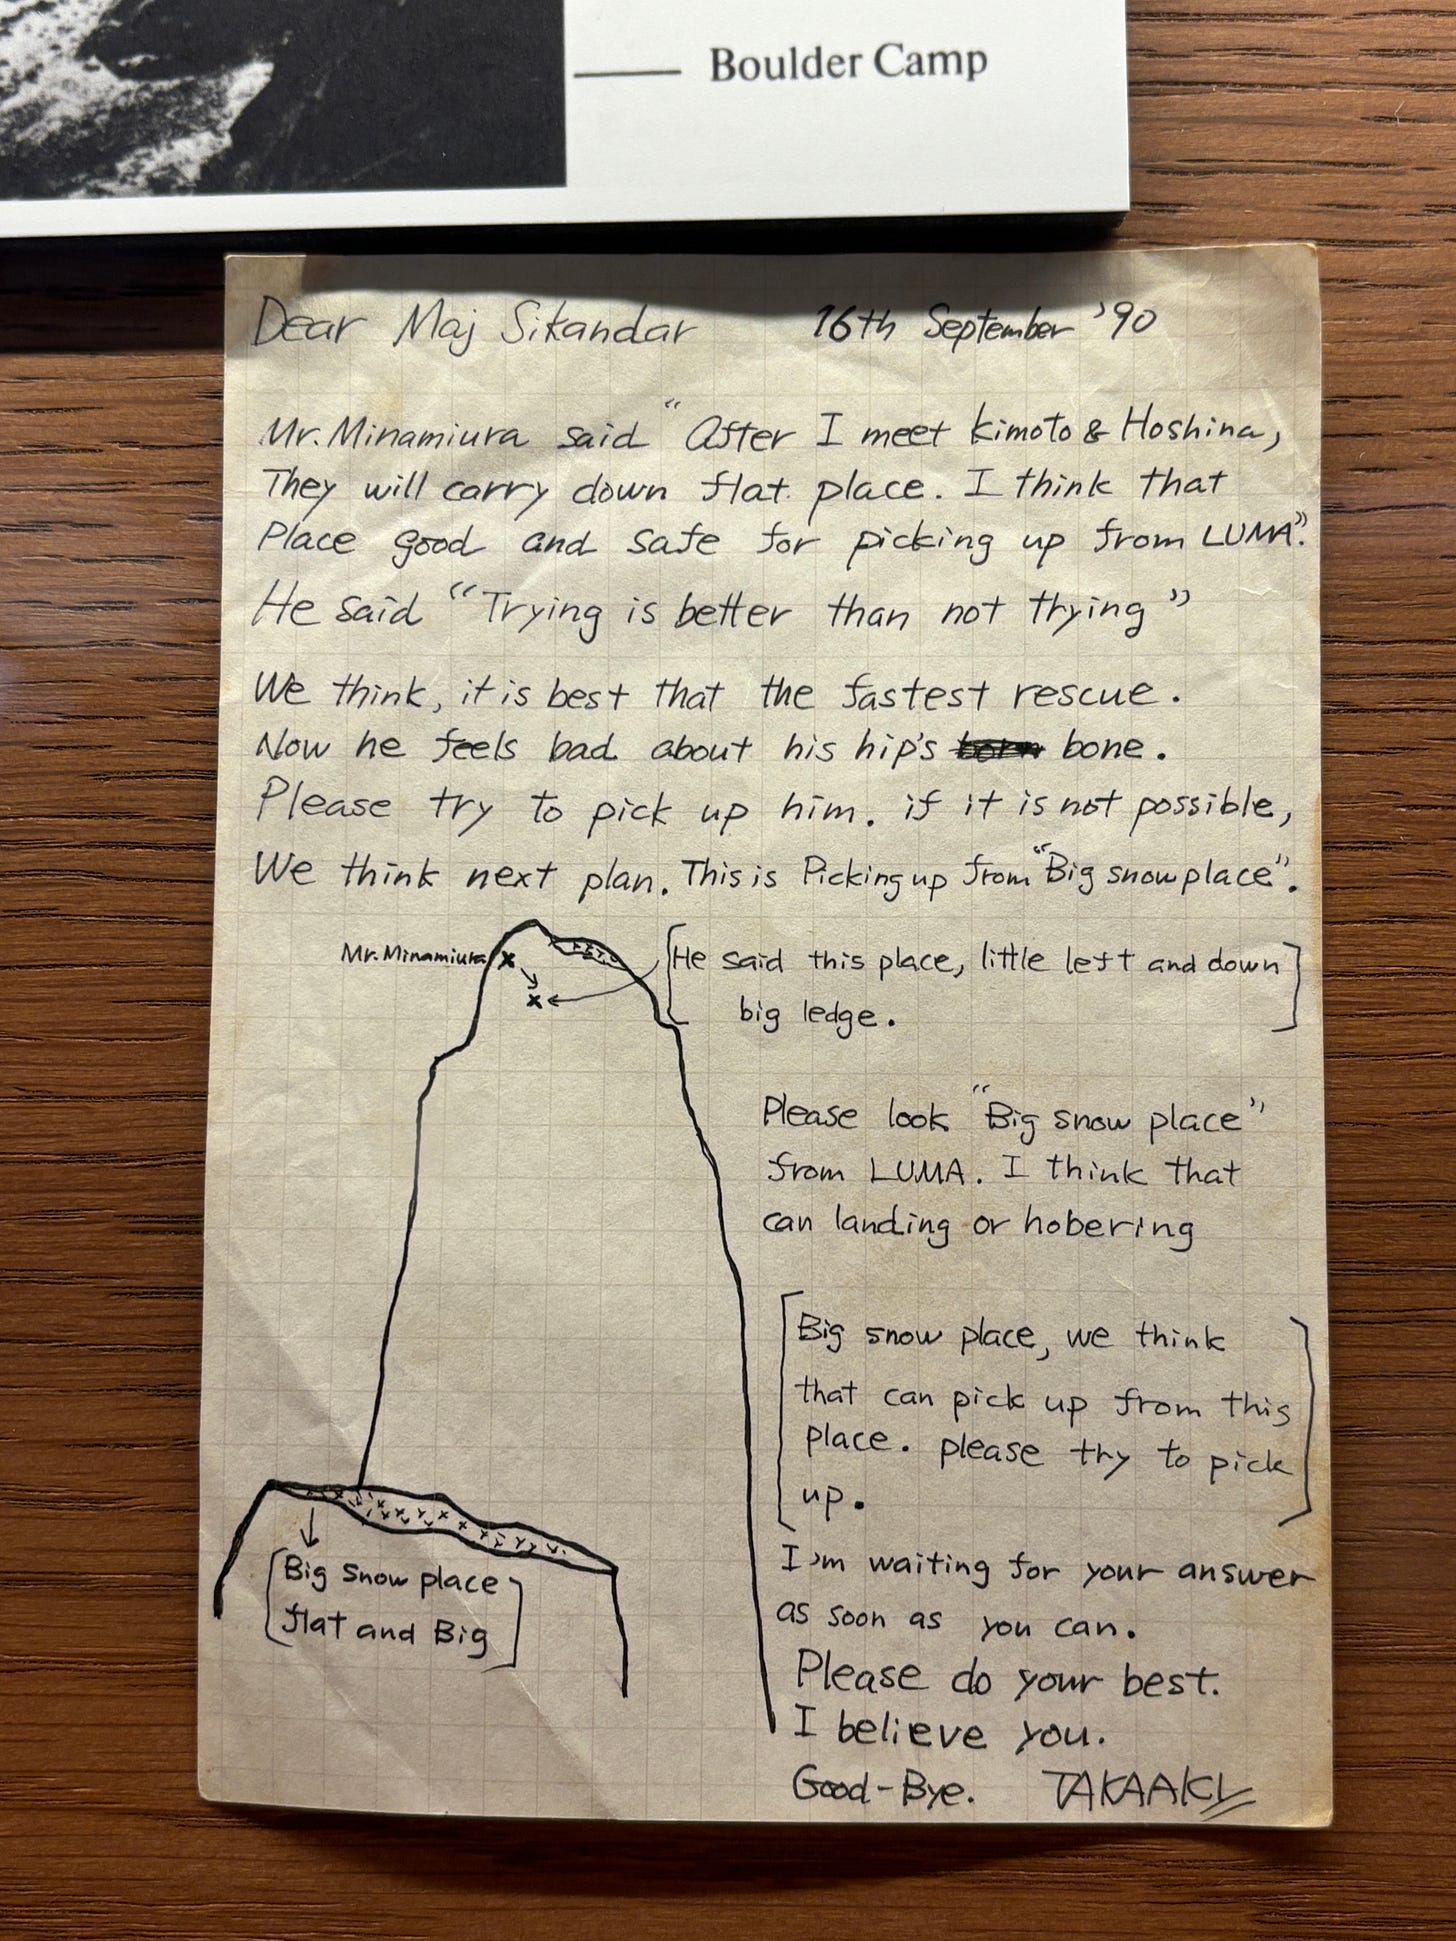 Boulder Camp
Dear Maj Sikandar 16th September '90
Mr. Minamiura said "After I meet kimoto & Hoshina,
They will carry down flat place. I think that
Place good and safe for picking up from LUMA".
He said "Trying is better than not trying"
We think, it is best that the fastest rescue.
Now he feels bad about his hip's bone.
Please try to pick up him. if it is not possible,
We think next plan. This is Picking up from "Big snow place".
Mr. Minamiura
[He said this place, little left and down
big ledge.]
Please look "Big snow place"
from LUMA. I think that
can landing or hobering
[Big snow place, we think
that can pick up from this
place. please try to pick
up.]
[Big snow place
flat and Big]
I'm waiting for your answer
as soon as you can.
Please do your best.
I believe you.
Good-Bye. TAKAAKI